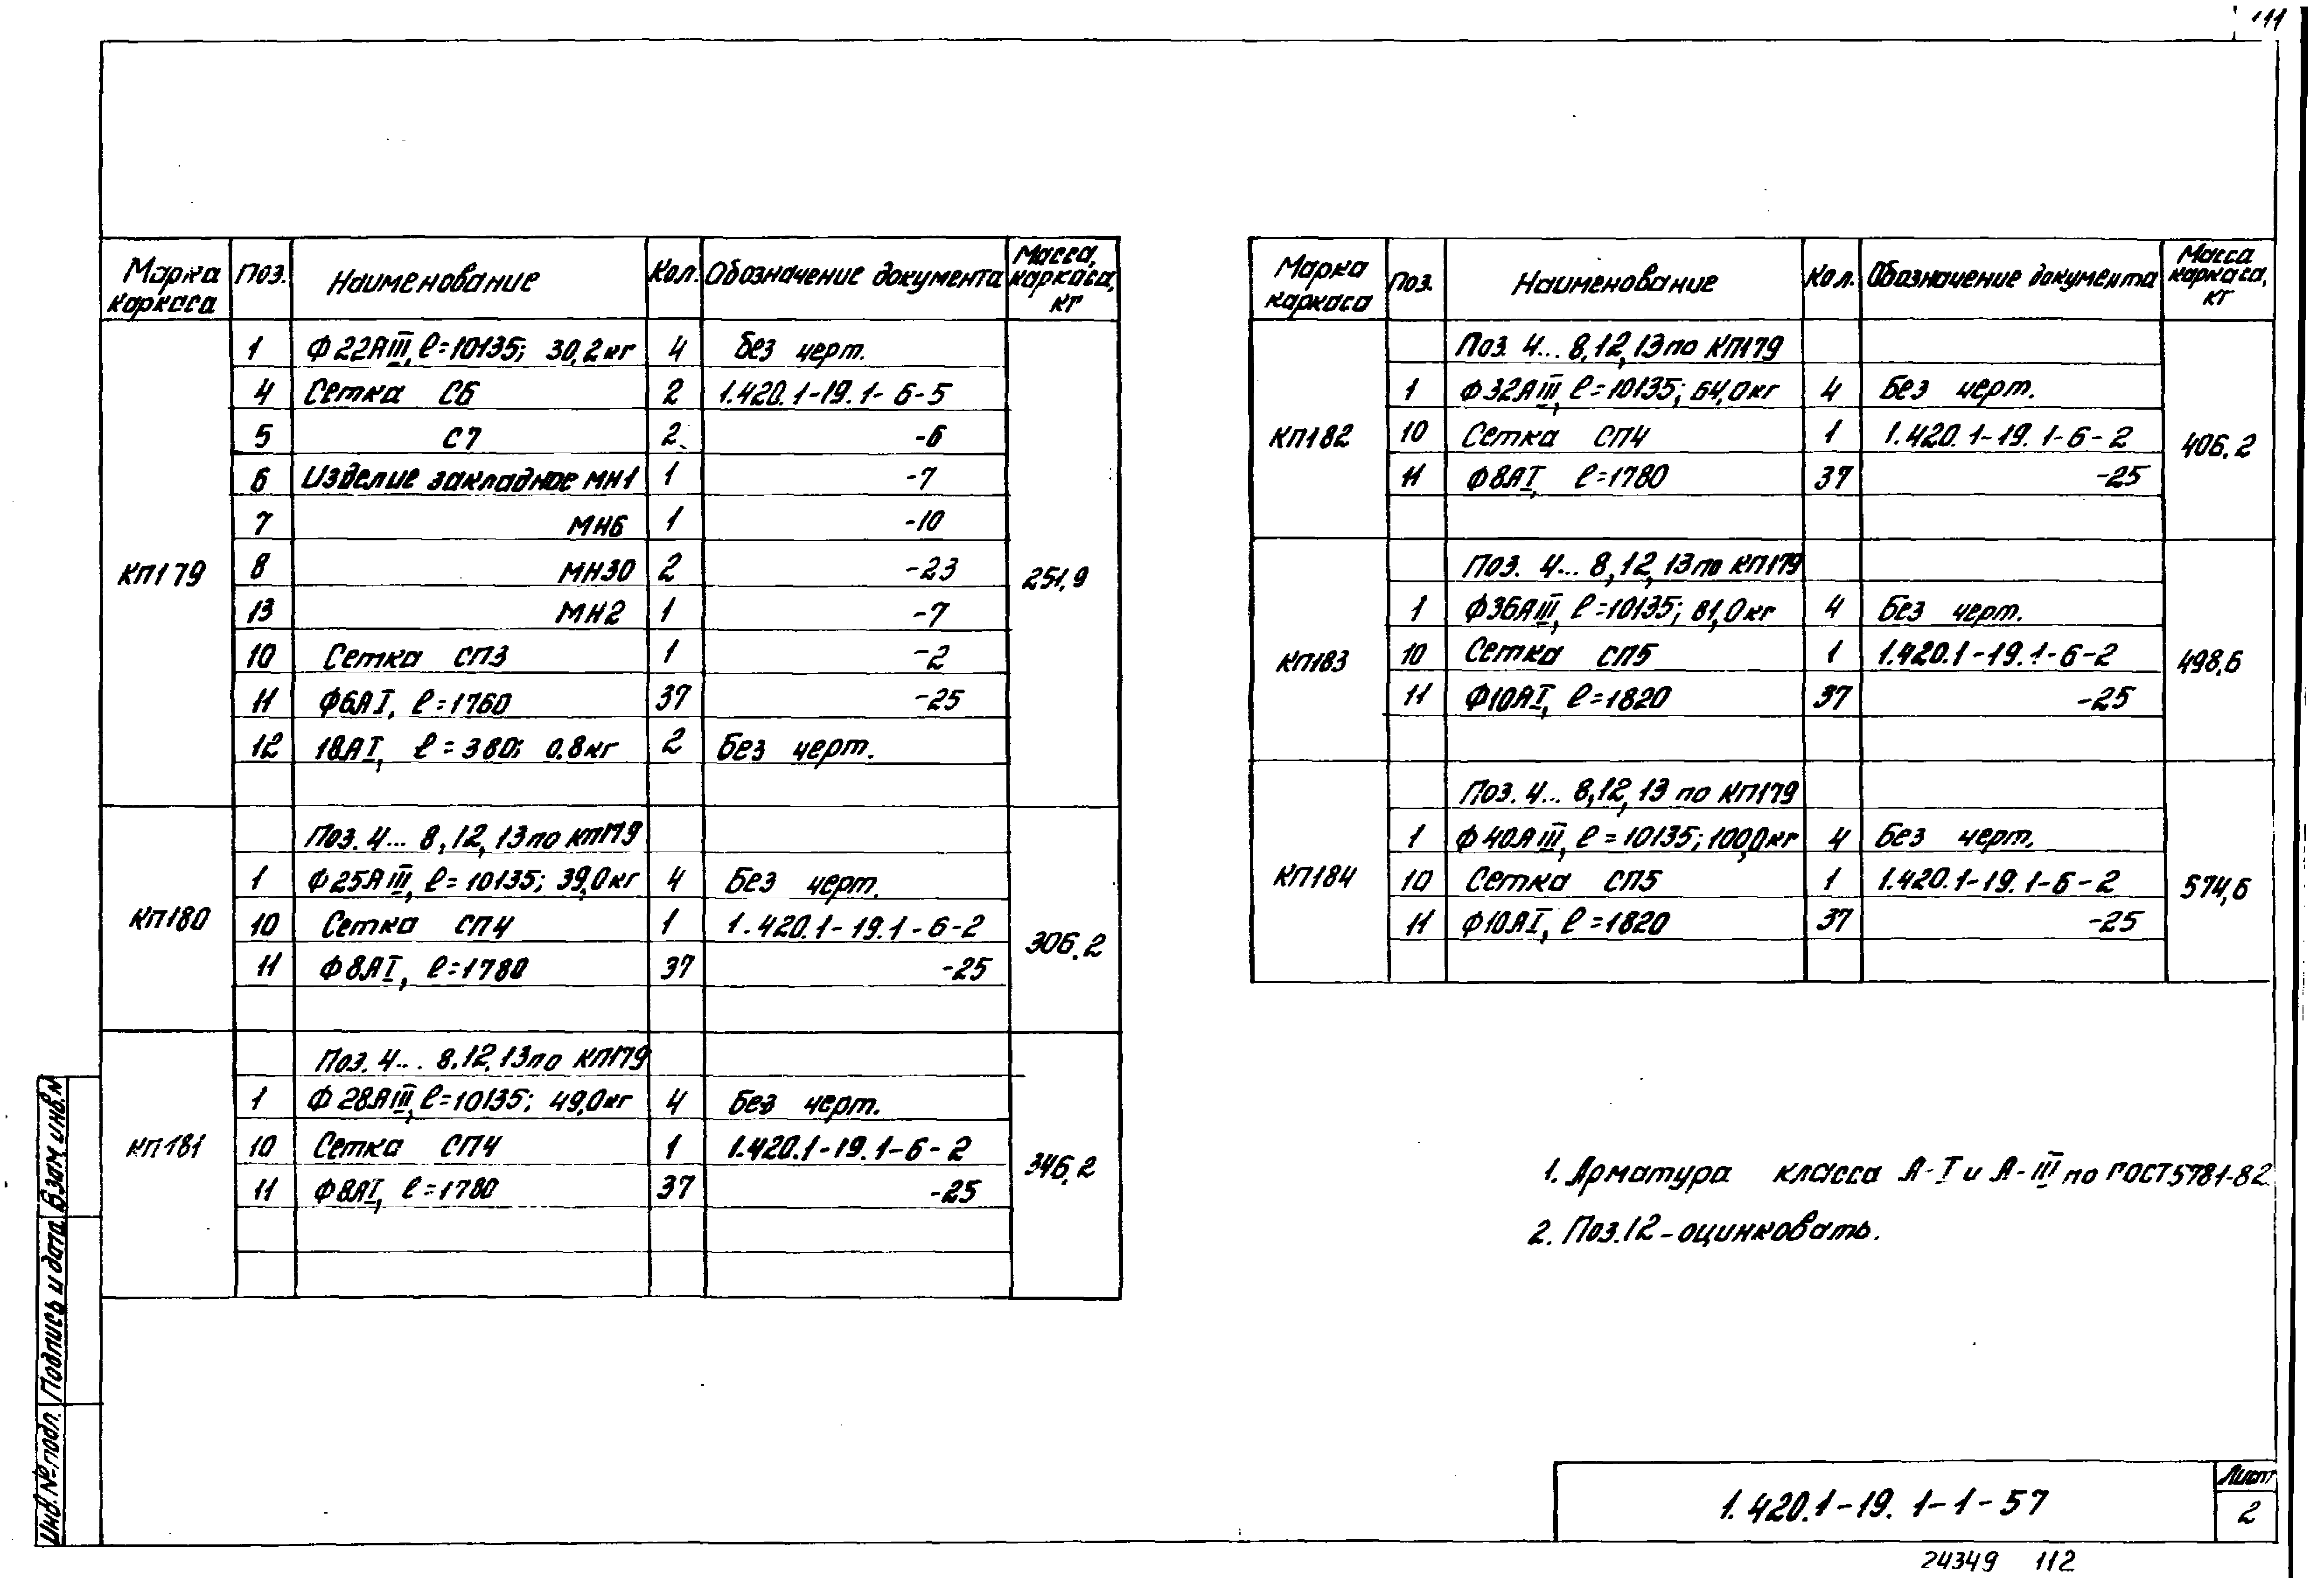 111
Марка каркаса Поз. Наименование Кол. Обозначение документа Масса, каркаса, кг
КП179 251,9
1 Ф22АIII, ℓ=10135; 30,2кг 4 Без черт.
4 Сетка С6 2 1.420.1-19.1-6-5
5 С7 2 -6
6 Изделие закладное МН1 1 -7
7 МН6 1 -10
8 МН30 2 -23
13 МН2 1 -7
10 Сетка СП3 1 -2
11 Ф6АI, ℓ=1760 37 -25
12 18АI, ℓ=380; 0.8кг 2 Без черт.
КП180 306.2
Поз. 4... 8,12,13 по КП179
1 Ф25АIII, ℓ=10135; 39,0кг 4 Без черт.
10 Сетка СП4 1 1.420.1-19.1-6-2
11 Ф8АI, ℓ=1780 37 -25
КП181 346.2
Поз. 4... 8.12.13 по КП179
1 Ф28АIII, ℓ=10135; 49,0кг 4 Без черт.
10 Сетка СП4 1 1.420.1-19.1-6-2
11 Ф8АI, ℓ=1780 37 -25
Марка каркаса Поз. Наименование Кол. Обозначение документа Масса каркаса, кг
КП182 406.2
Поз. 4... 8,12,13 по КП179
1 Ф32АIII, ℓ=10135; 64,0кг 4 Без черт.
10 Сетка СП4 1 1.420.1-19.1-6-2
11 Ф8АI, ℓ=1780 37 -25
КП183 498,6
Поз. 4... 8,12,13 по КП179
1 Ф36АIII, ℓ=10135; 81,0кг 4 Без черт.
10 Сетка СП5 1 1.420.1-19.1-6-2
11 Ф10АI, ℓ=1820 37 -25
КП184 574,6
Поз. 4... 8,12,13 по КП179
1 Ф40АIII, ℓ=10135; 100,0кг 4 Без черт.
10 Сетка СП5 1 1.420.1-19.1-6-2
11 Ф10АI, ℓ=1820 37 -25
1. Арматура класса А-I и А-III по ГОСТ5781-82
2. Поз.12-оцинковать.
Инв.№подл. Подпись и дата Взам инв.N
1.420.1-19.1-1-57
Лист
2
24349 112